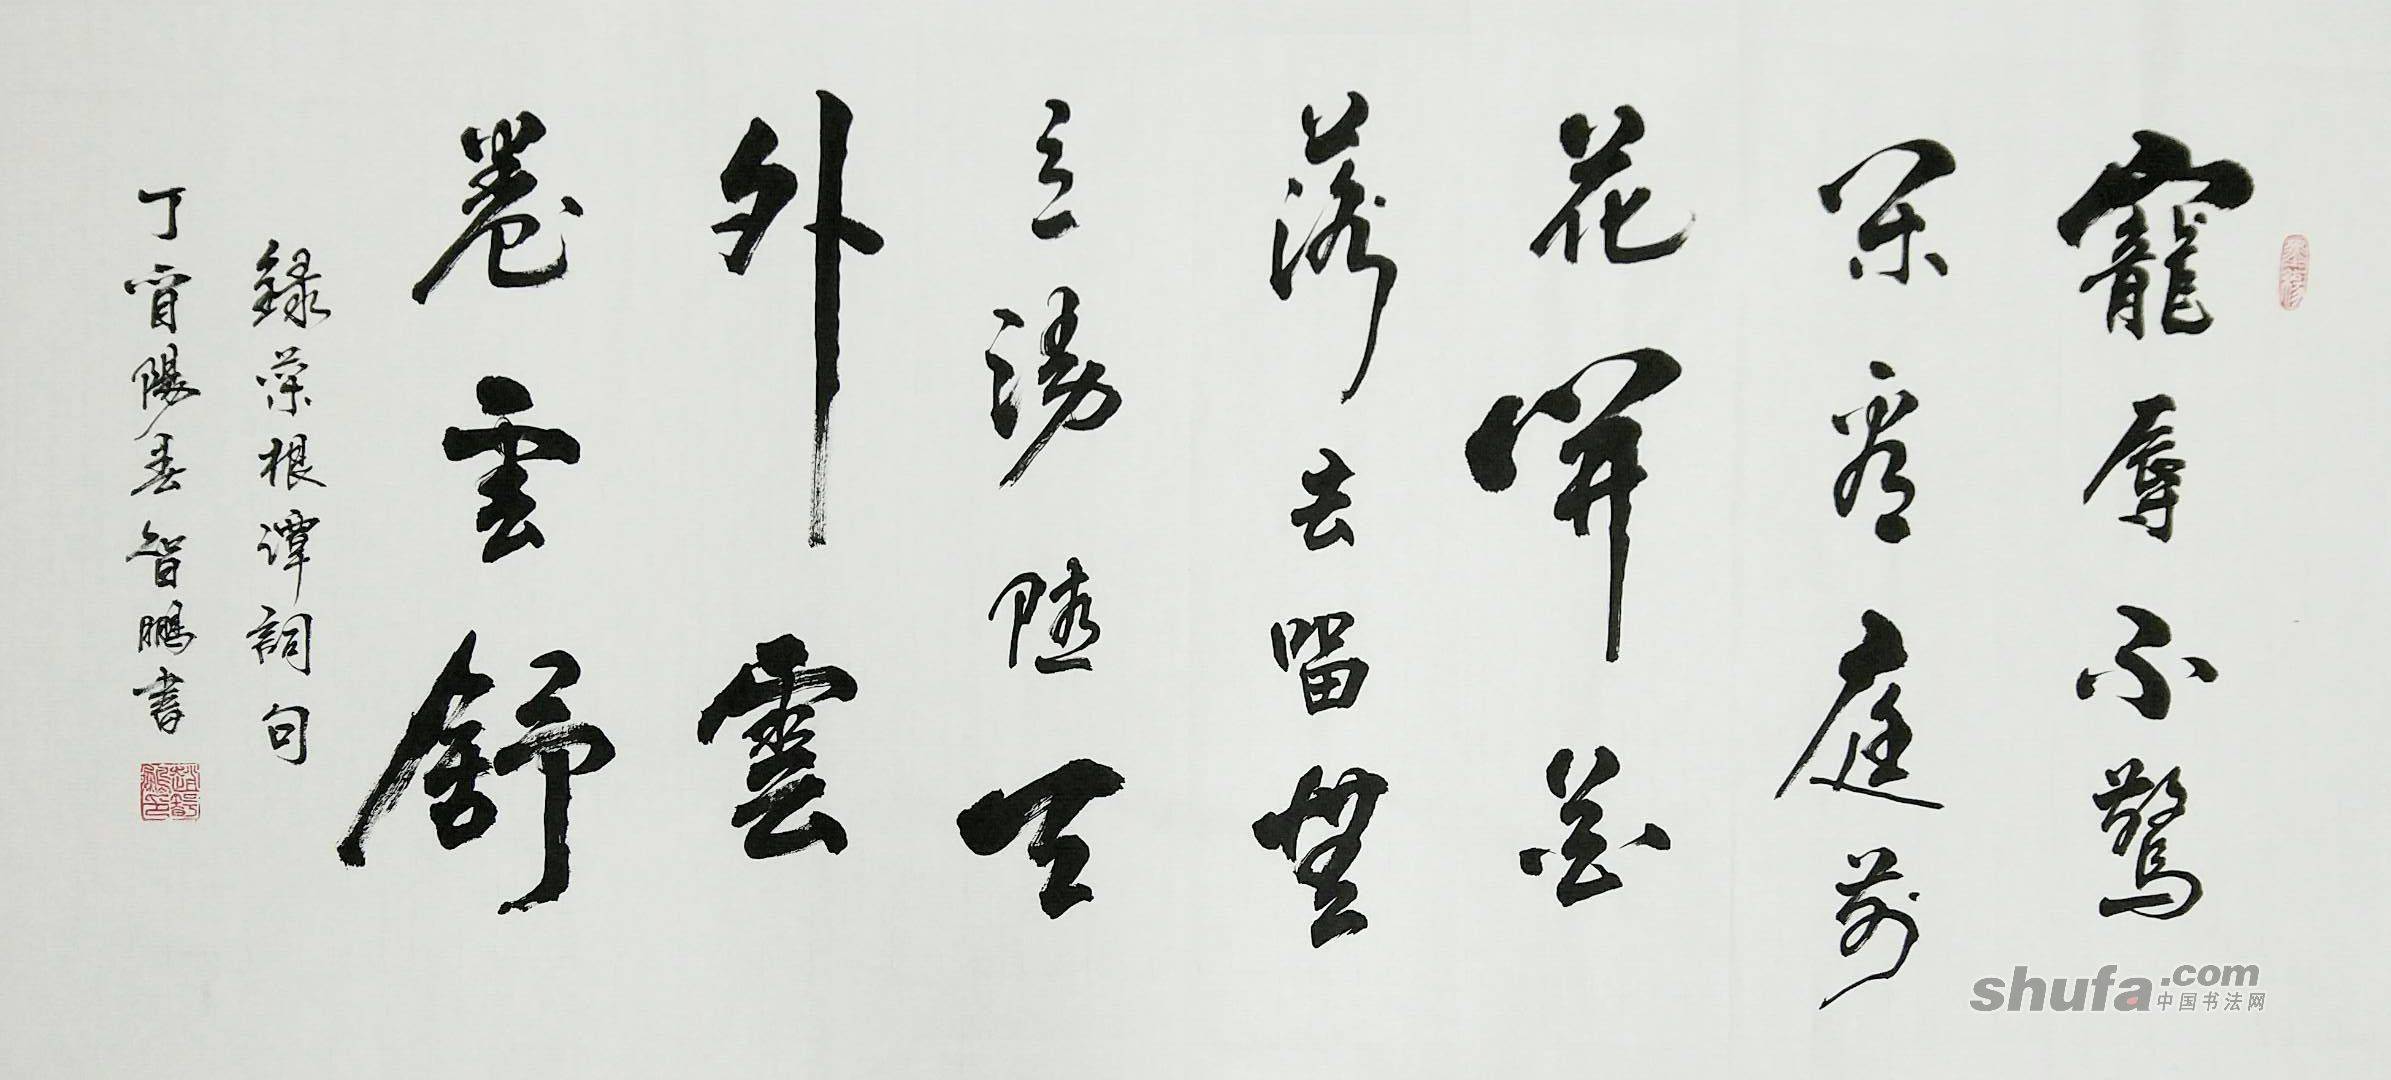 寵辱不驚
閑看庭前
花開花
落去留無
意漫隨天
外雲
卷雲舒
錄菜根譚詞句
丁酉陽春智鵬書
shufa.com
中国书法网